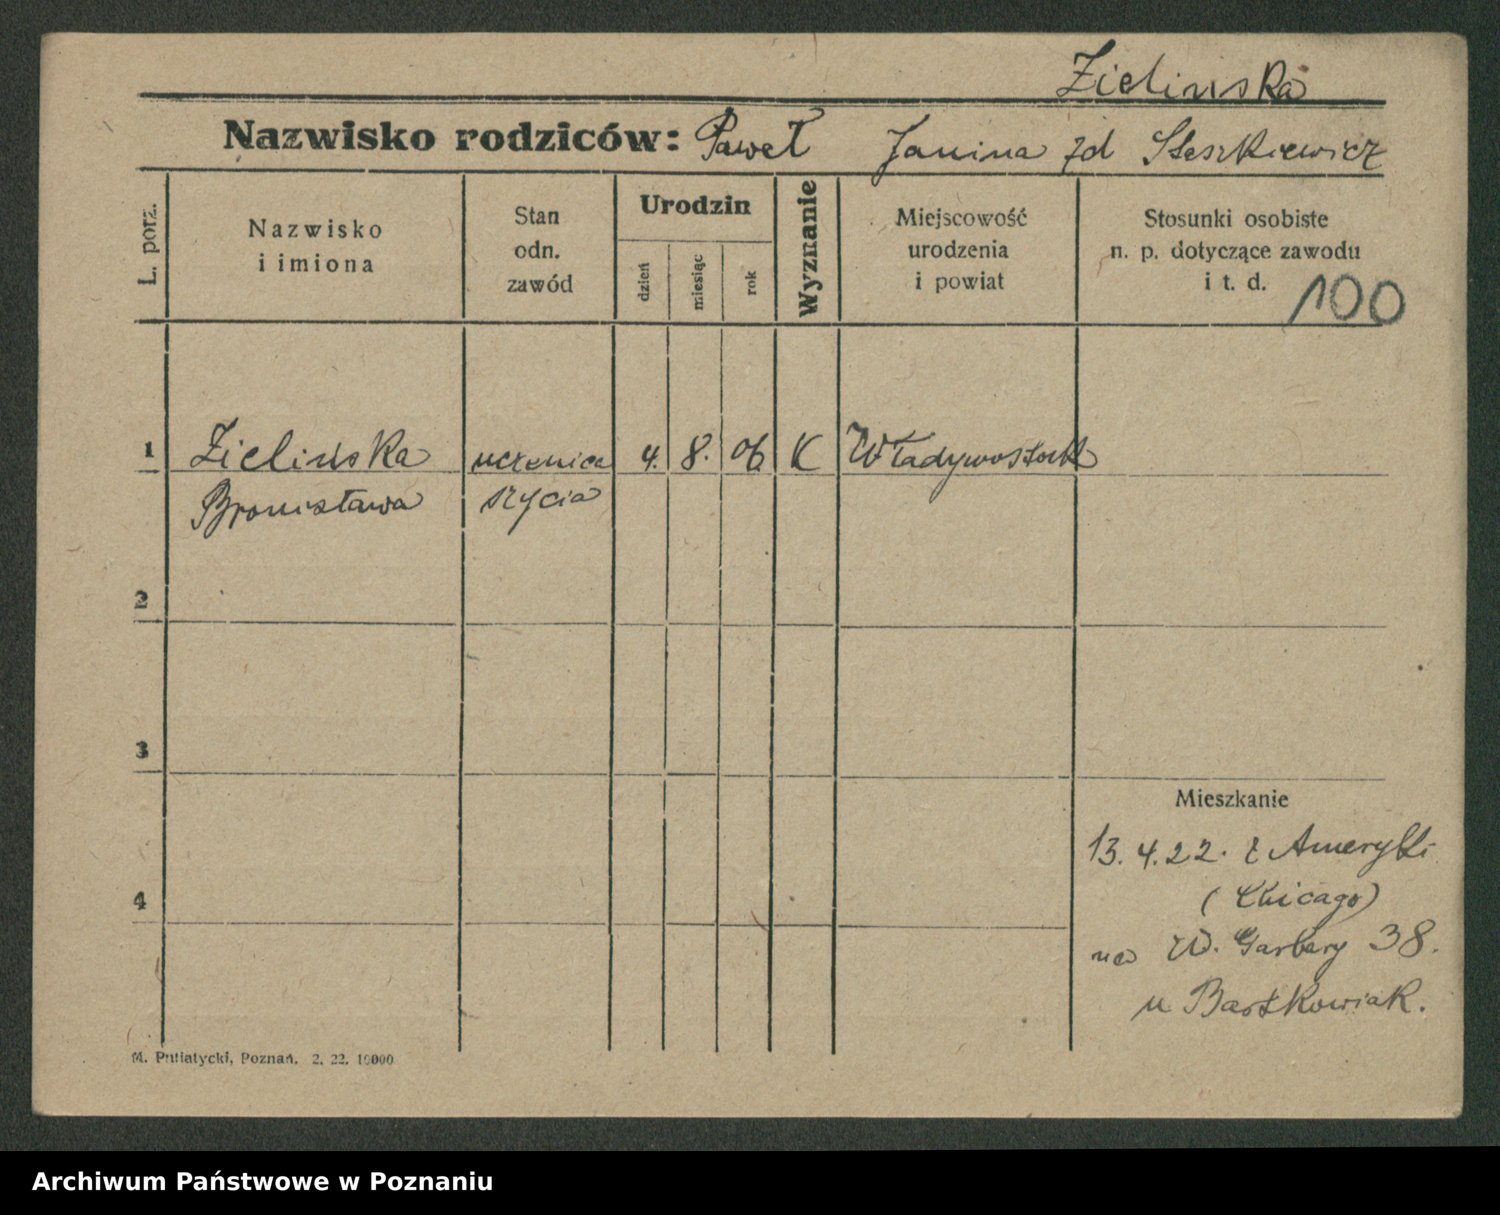 Zielinska
Nazwisko rodziców: Paweł Janina zd Steszkiewicz
L. porz.
Nazwisko
i imiona
Stan
odn.
zawód
Urodzin
dzień
miesiąc
rok
Wyznanie
Miejscowość
urodzenia
i powiat
Stosunki osobiste
n. p. dotyczące zawodu
i t. d.
100
1 Zielińska uczenica 4. 8. 06 K Władywostok
Bronisława szycia
2
3
Mieszkanie
13. 4. 22. z Ameryki
4
(Chicago)
na W. Garbary 38.
u Bartkowiak.
M. Putiatycki, Poznań. 2. 22. 10000
Archiwum Państwowe w Poznaniu